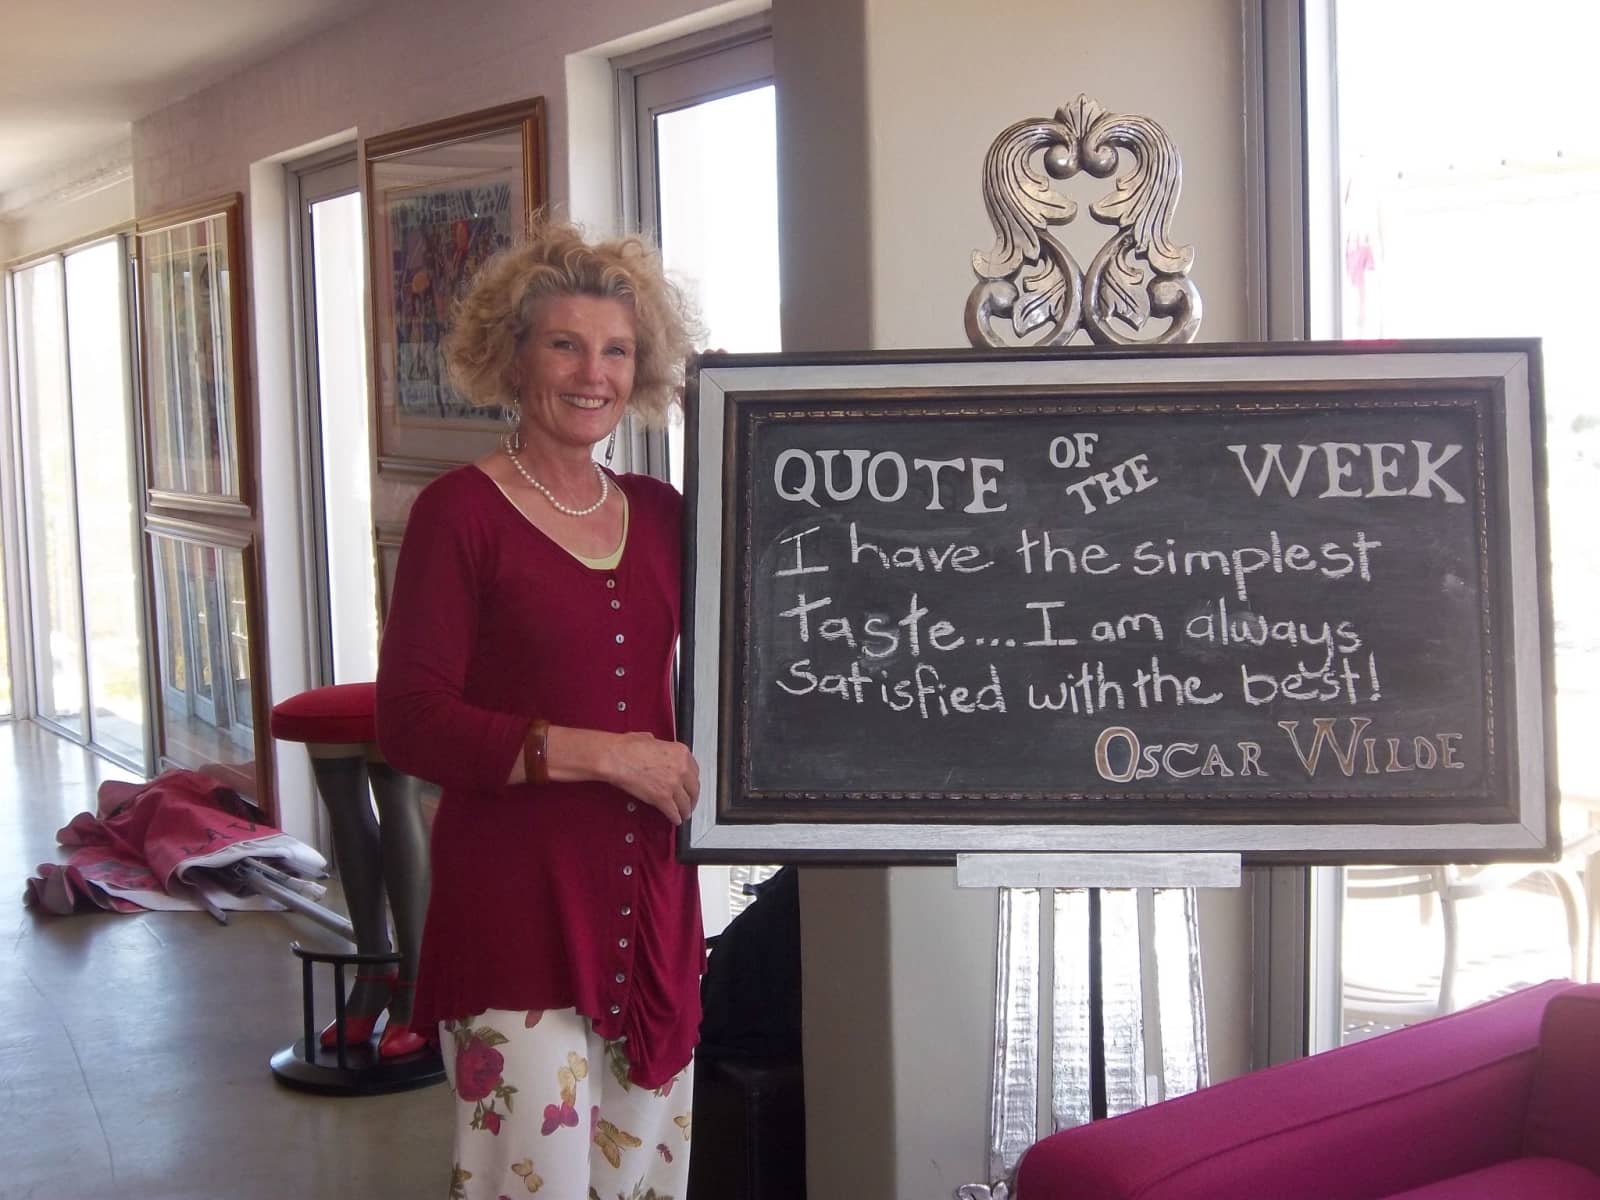 QUOTE OF THE WEEK
I have the simplest
taste...I am always
satisfied with the best!
OSCAR WILDE